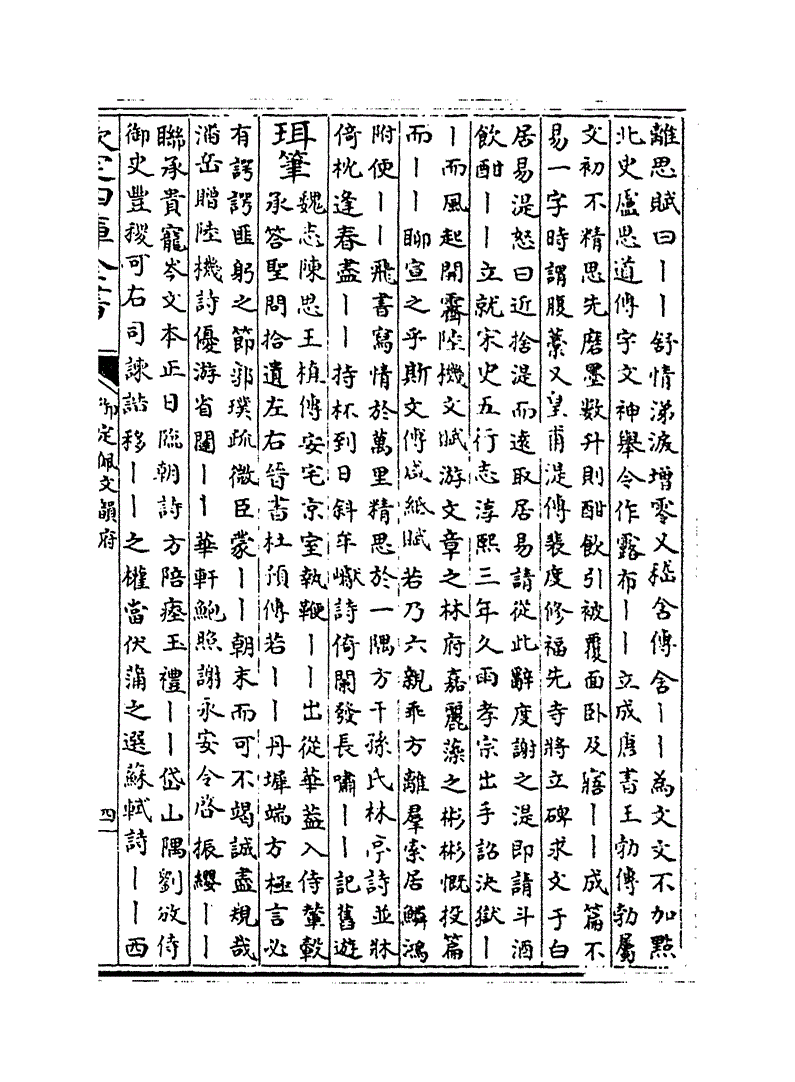 離思賦曰丨丨舒情涕淚增零又嵇含傳含丨丨為文文不加點
北史盧思道傳宇文神舉令作露布丨丨立成唐書王勃傳勃屬
文初不精思先磨墨數升則酣飲引被覆面卧及寤丨丨成篇不
易一字時謂腹藁又皇甫湜傳裴度修福先寺將立碑求文于白
居易湜怒曰近捨湜而遠取居易請從此辭度謝之湜即請斗酒
飲酣丨丨立就宋史五行志淳熙三年久雨孝宗出手詔決獄丨
丨而風起開霽陸機文賦游文章之林府嘉麗藻之彬彬慨投篇
而丨丨聊宣之乎斯文傅咸紙賦若乃六親乖方離羣索居鱗鴻
附便丨丨飛書寫情於萬里精思於一隅方干孫氏林亭詩並牀
倚枕逢春盡丨丨持杯到日斜牟巘詩倚闌發長嘯丨丨記舊遊
珥筆
魏志陳思王植傳安宅京室執鞭丨丨出從華葢入侍輦轂
承答聖問拾遺左右晉書杜預傳若丨丨丹墀端方極言必
有諤諤匪躬之節郭璞疏微臣蒙丨丨朝末而可不竭誠盡規哉
潘岳贈陸機詩優游省闥丨丨華軒鮑照謝永安令啓振纓丨丨
聯承貴寵岑文本正日臨朝詩方陪瘞玉禮丨丨岱山隅劉攽侍
御史豐稷可右司諫誥移丨丨之權當伏蒲之選蘇軾詩丨丨西
欽定四庫全書
御定佩文韻府
四